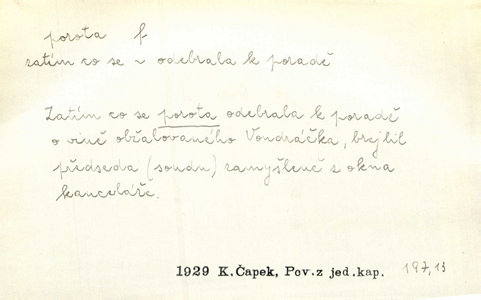 porota f
zatím co se ~ odebrala k poradě
Zatím co se porota odebrala k poradě
o vině obžalovaného Vondráčka, brejlil
předseda (soudu) zamyšleně z okna
kanceláře.
1929 K.Čapek, Pov.z jed.kap. 197,13